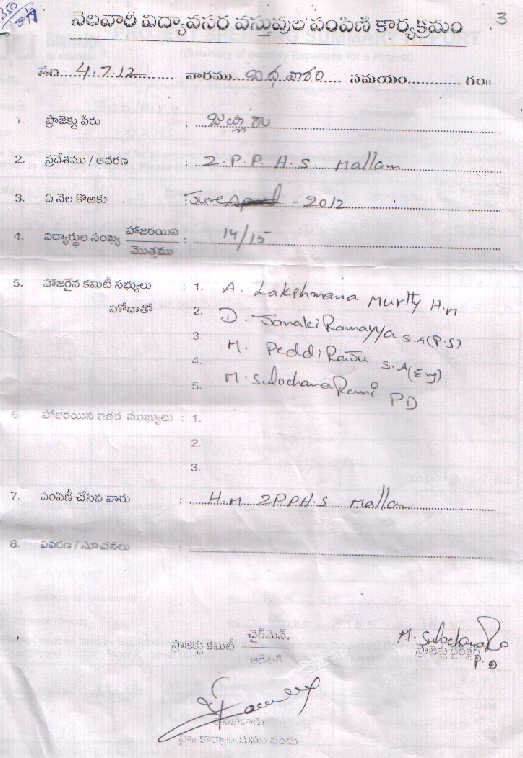 3
నెలవారీ విద్యావసర వస్తువుల పంపిణీ కార్యక్రమం
తేది 4.7.12 వారము బుధవారం సమయం గం॥
1 ప్రాజెక్టు పేరు :
2. ప్రదేశము / ఆవరణ : Z.P.P.H.S Mallam
3. ఏ నెల కొఱకు : June - 2012
4. విద్యార్థుల సంఖ్య హాజరయిన / మొత్తము : 14/15
5. హాజరైన కమిటీ సభ్యులు : 1. A. Lakshmana Murthy H.M
హోదాతో 2. D. Janaki Ramayya S.A(P.S)
3. M. Peddi Raju S.A(Eng)
4.
5. M. Sulochana Rani PD
6 హాజరయిన ఇతర ముఖ్యులు : 1.
2.
3.
7. పంపిణీ చేసిన వారు : H.M Z.P.P.H.S Mallam
8. వివరణ / సూచనలు :
ప్రాజెక్టు కమిటీ ఛైర్మెన్.
M. Sulochana Ra
P.D